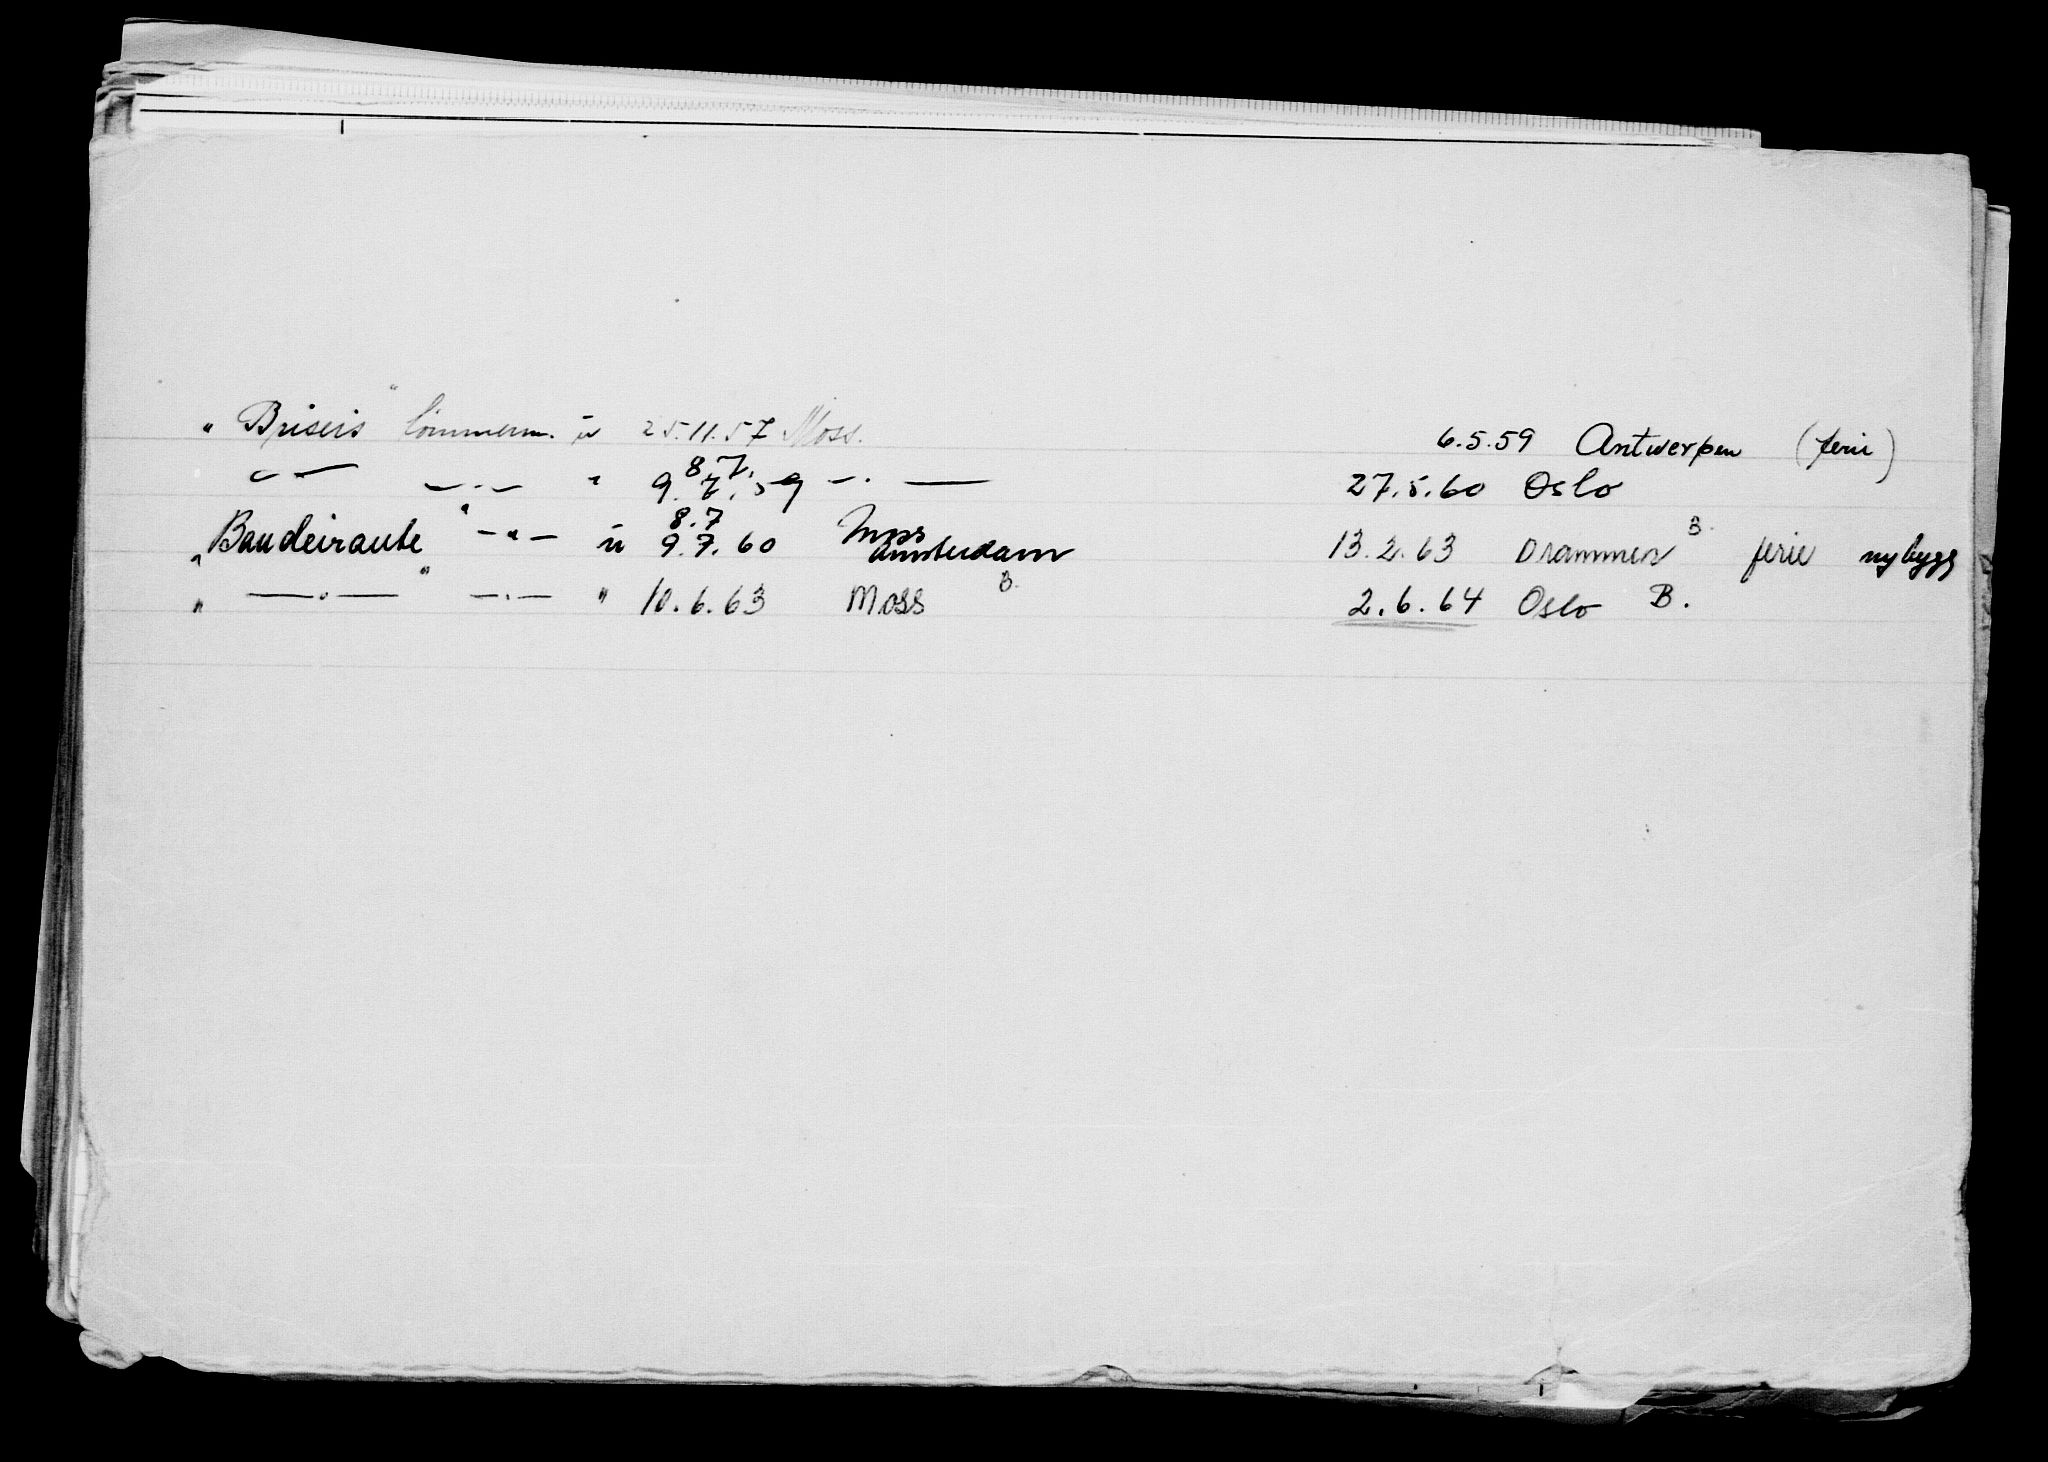 "Briseis" tömmerm. ü 25.11.57 Moss. 6.5.59 Antwerpen (ferie)
— — — " — " 8.7. 9.7.59 — . — 27.5.60 Oslo
"Bandeirante" — " — ü 8.7 9.7.60 Moss Amsterdam 13.2.63 Drammen B. ferie nybygg
" — " — — . — " 10.6.63 Moss B. 2.6.64 Oslo B.